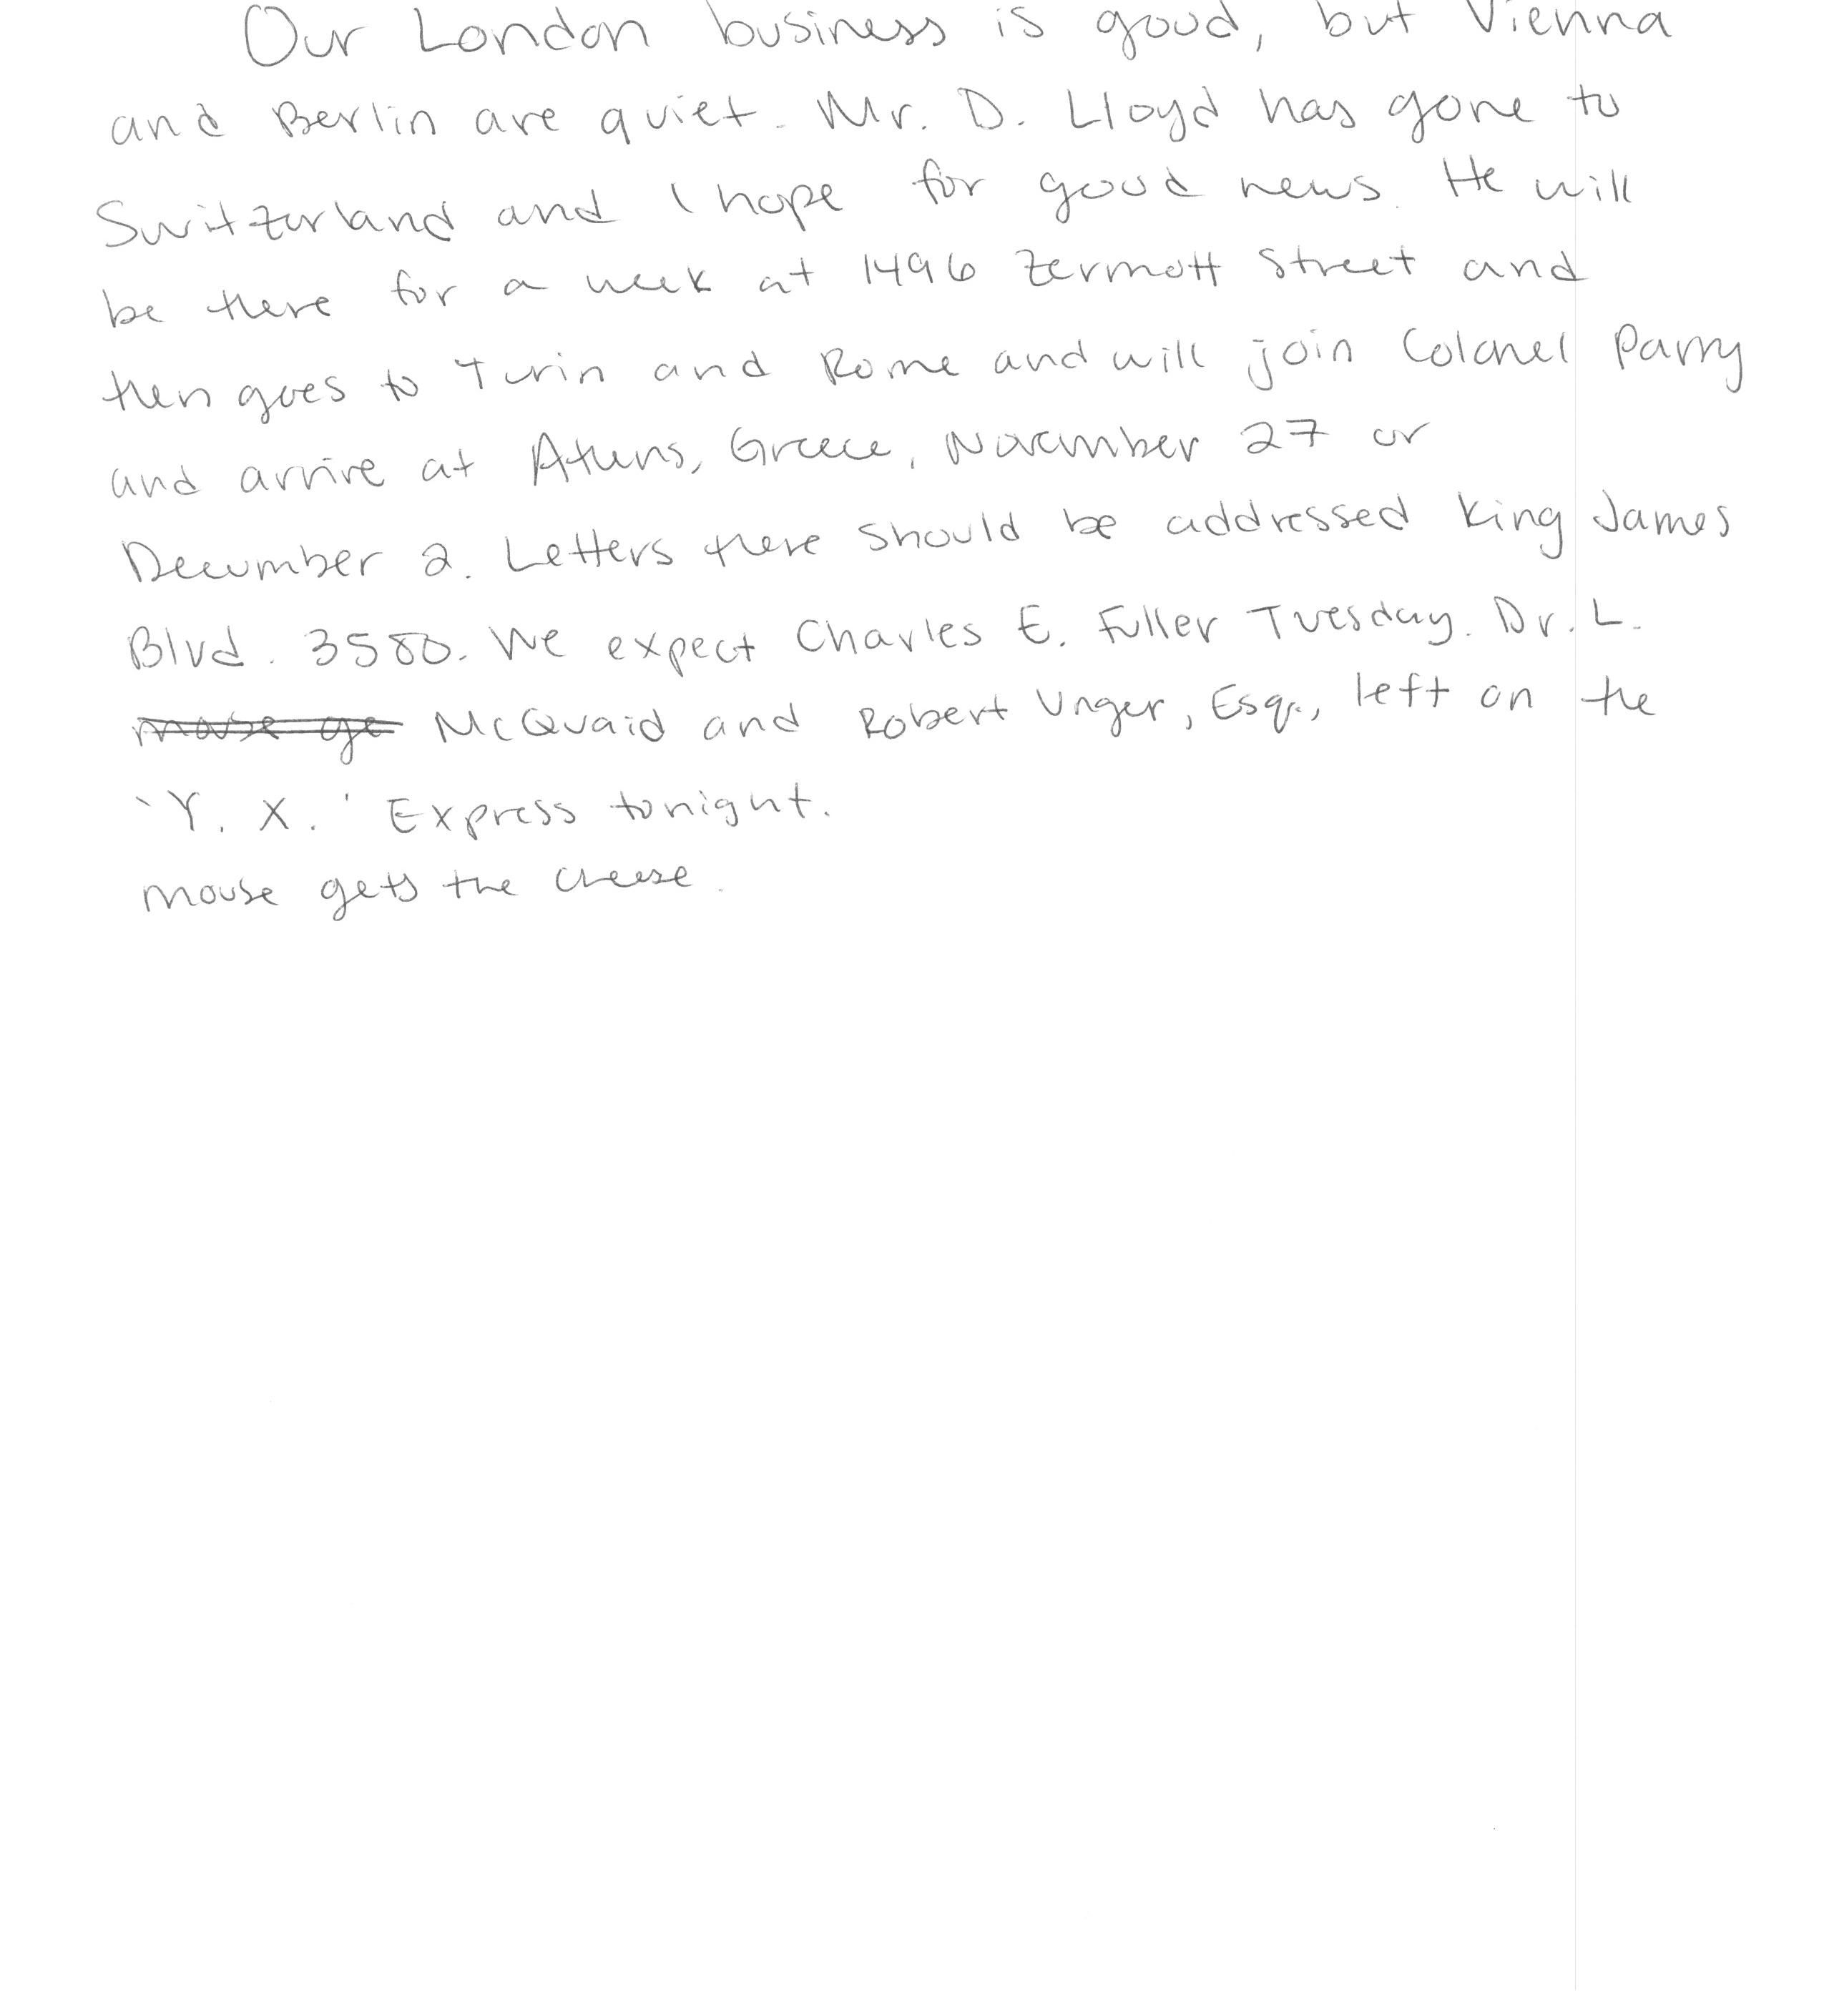 Our London business is good, but Vienna
and Berlin are quiet. Mr. D. Lloyd has gone to
Switzerland and I hope for good news. He will
be there for a week at 1496 Zermott Street and
then goes to Turin and Rome and will join Colonel Parry
and arrive at Athens, Greece, November 27 or
December 2. Letters there should be addressed King James
Blvd. 3580. We expect Charles E. Fuller Tuesday. Dr. L.
mouse ge McQuaid and Robert Unger, Esq., left on the
`Y. X.' Express tonight.
mouse gets the cheese.